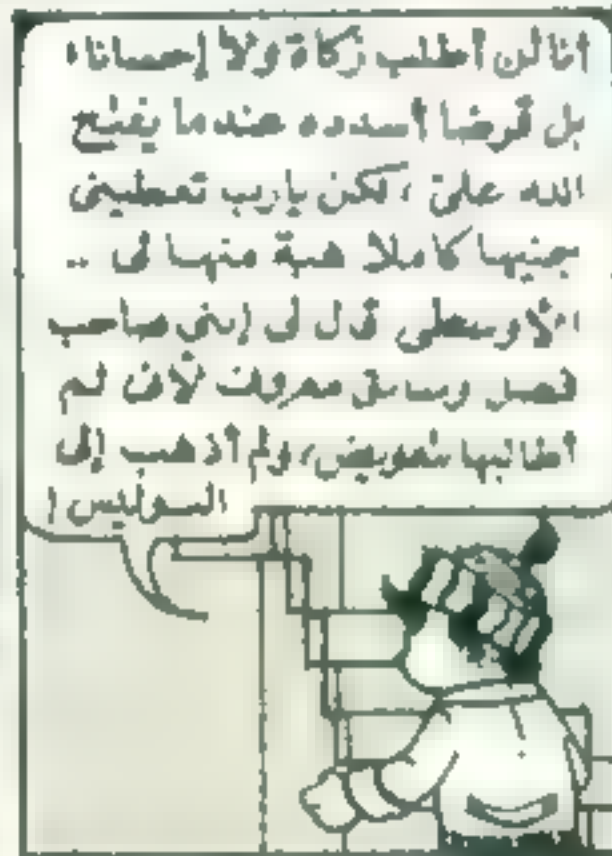 أنا لن أطلب زكاة ولا إحسانا،
بل قرضا أسدده عندما يفتح
الله على ، لكن يارب تعطينى
جنيها كاملا هبة منها لى ..
الأوسطى قال لى إننى صاحب
فضل وسابق معروف لأنى لم
أطالبها بتعويض، ولم أذهب إلى
البوليس !